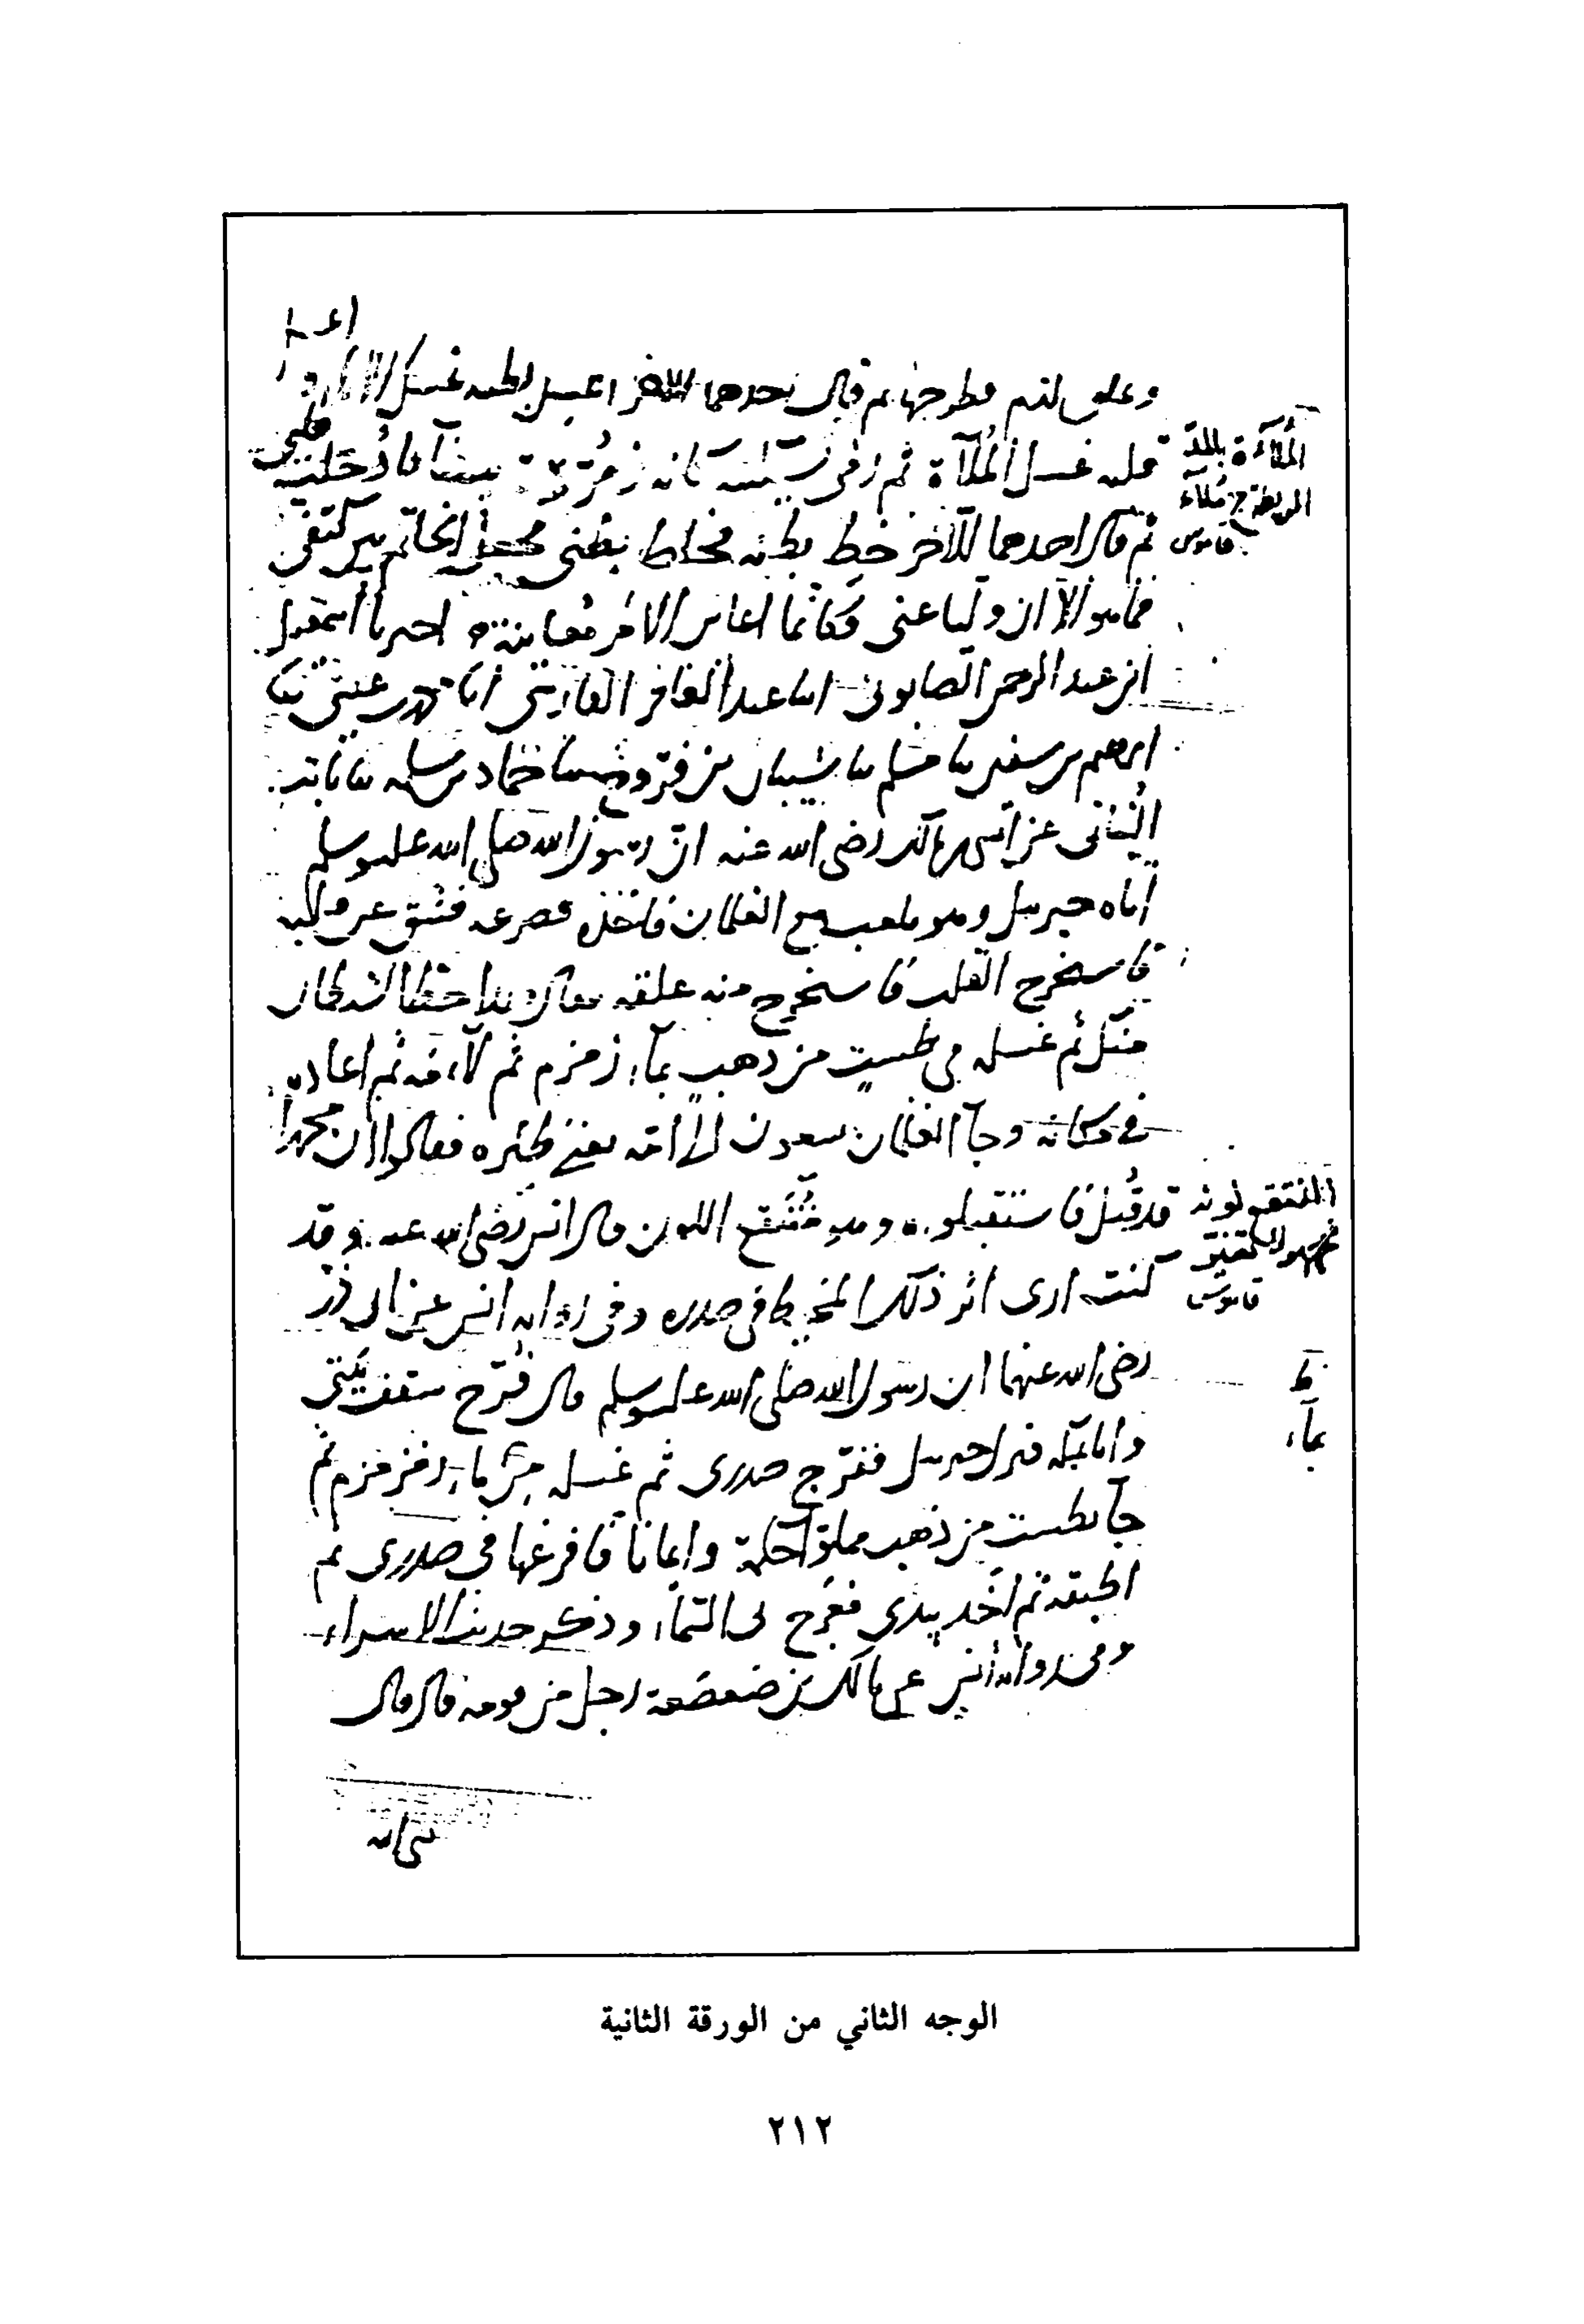 اغسل
وعلق الدم فطرحها ثم قال احدهما للآخر اغسل بطنه غسل الاناء و
قلبه غسل المُلآة ثم دعى بسكينة كانه زمرّدة بيضآ فادخلت قلبي
الملآءة بالمدّ
الريطة ج مُلآء
قاموس
ثم قال احدهما للآخر خط بطنه فخاط بطني وجعل الخاتم بين كتفي
فما هو الا ان وليا عني فكانّما اعاين الامر معاينة احبرنا اسمعيل
ابن عبد الرحمن الصابوني انا عبد الغافر الفارسي انا محمد بن عيسى ثنا
ابرهيم بن سفين ثنا مسلم ثنا شيبان بن فرّوخ ثنا حماد بن سلمه ثنا ثابت
البُناني عن انس بن مالك رضى الله عنه انّ رسول الله صلى الله عليه وسلم
اتاه جبريل وهو يلعب مع الغلمان فاخذه فصرعه فشق عن قلبه
فاستخرج القلب فاستخرج منه علقه فقال هذا حظ الشيطان
منك ثم غسله في طست من ذهب بمآء زمزم ثم لأمه ثم اعاده
في مكانه وجآ الغلمان يسعون الى امّه يعني ظئره فقالوا ان محمدا
قد قُتل فاستقبلوه وهو مُنتقَع اللون قال انس رضى الله عنه وقد
انتقع لونه
قاموس
كنت ارى اثر ذلك المخيط في صدره وفي رواية انس عن ابى ذر
رضى الله عنهما ان رسول الله صلى الله عليه وسلم قال فُرّج سقف بيتي
ط
بمآء
وانا بمكّة فنزل جبريل ففرّج صدرى ثم غسله من مآء زمزم ثم
جآ بطست من ذهب مملوّ حكمة وايمانا فافرغها في صدرى ثم
اطبقه ثم اخذ بيدي فعرج لى السّمآء وذكر حديث الاسراء
وفي رواية انس عن مالك بن صَعصَعة رجل من قومه قال قال
الوجه الثاني من الورقة الثانية
٢١٢